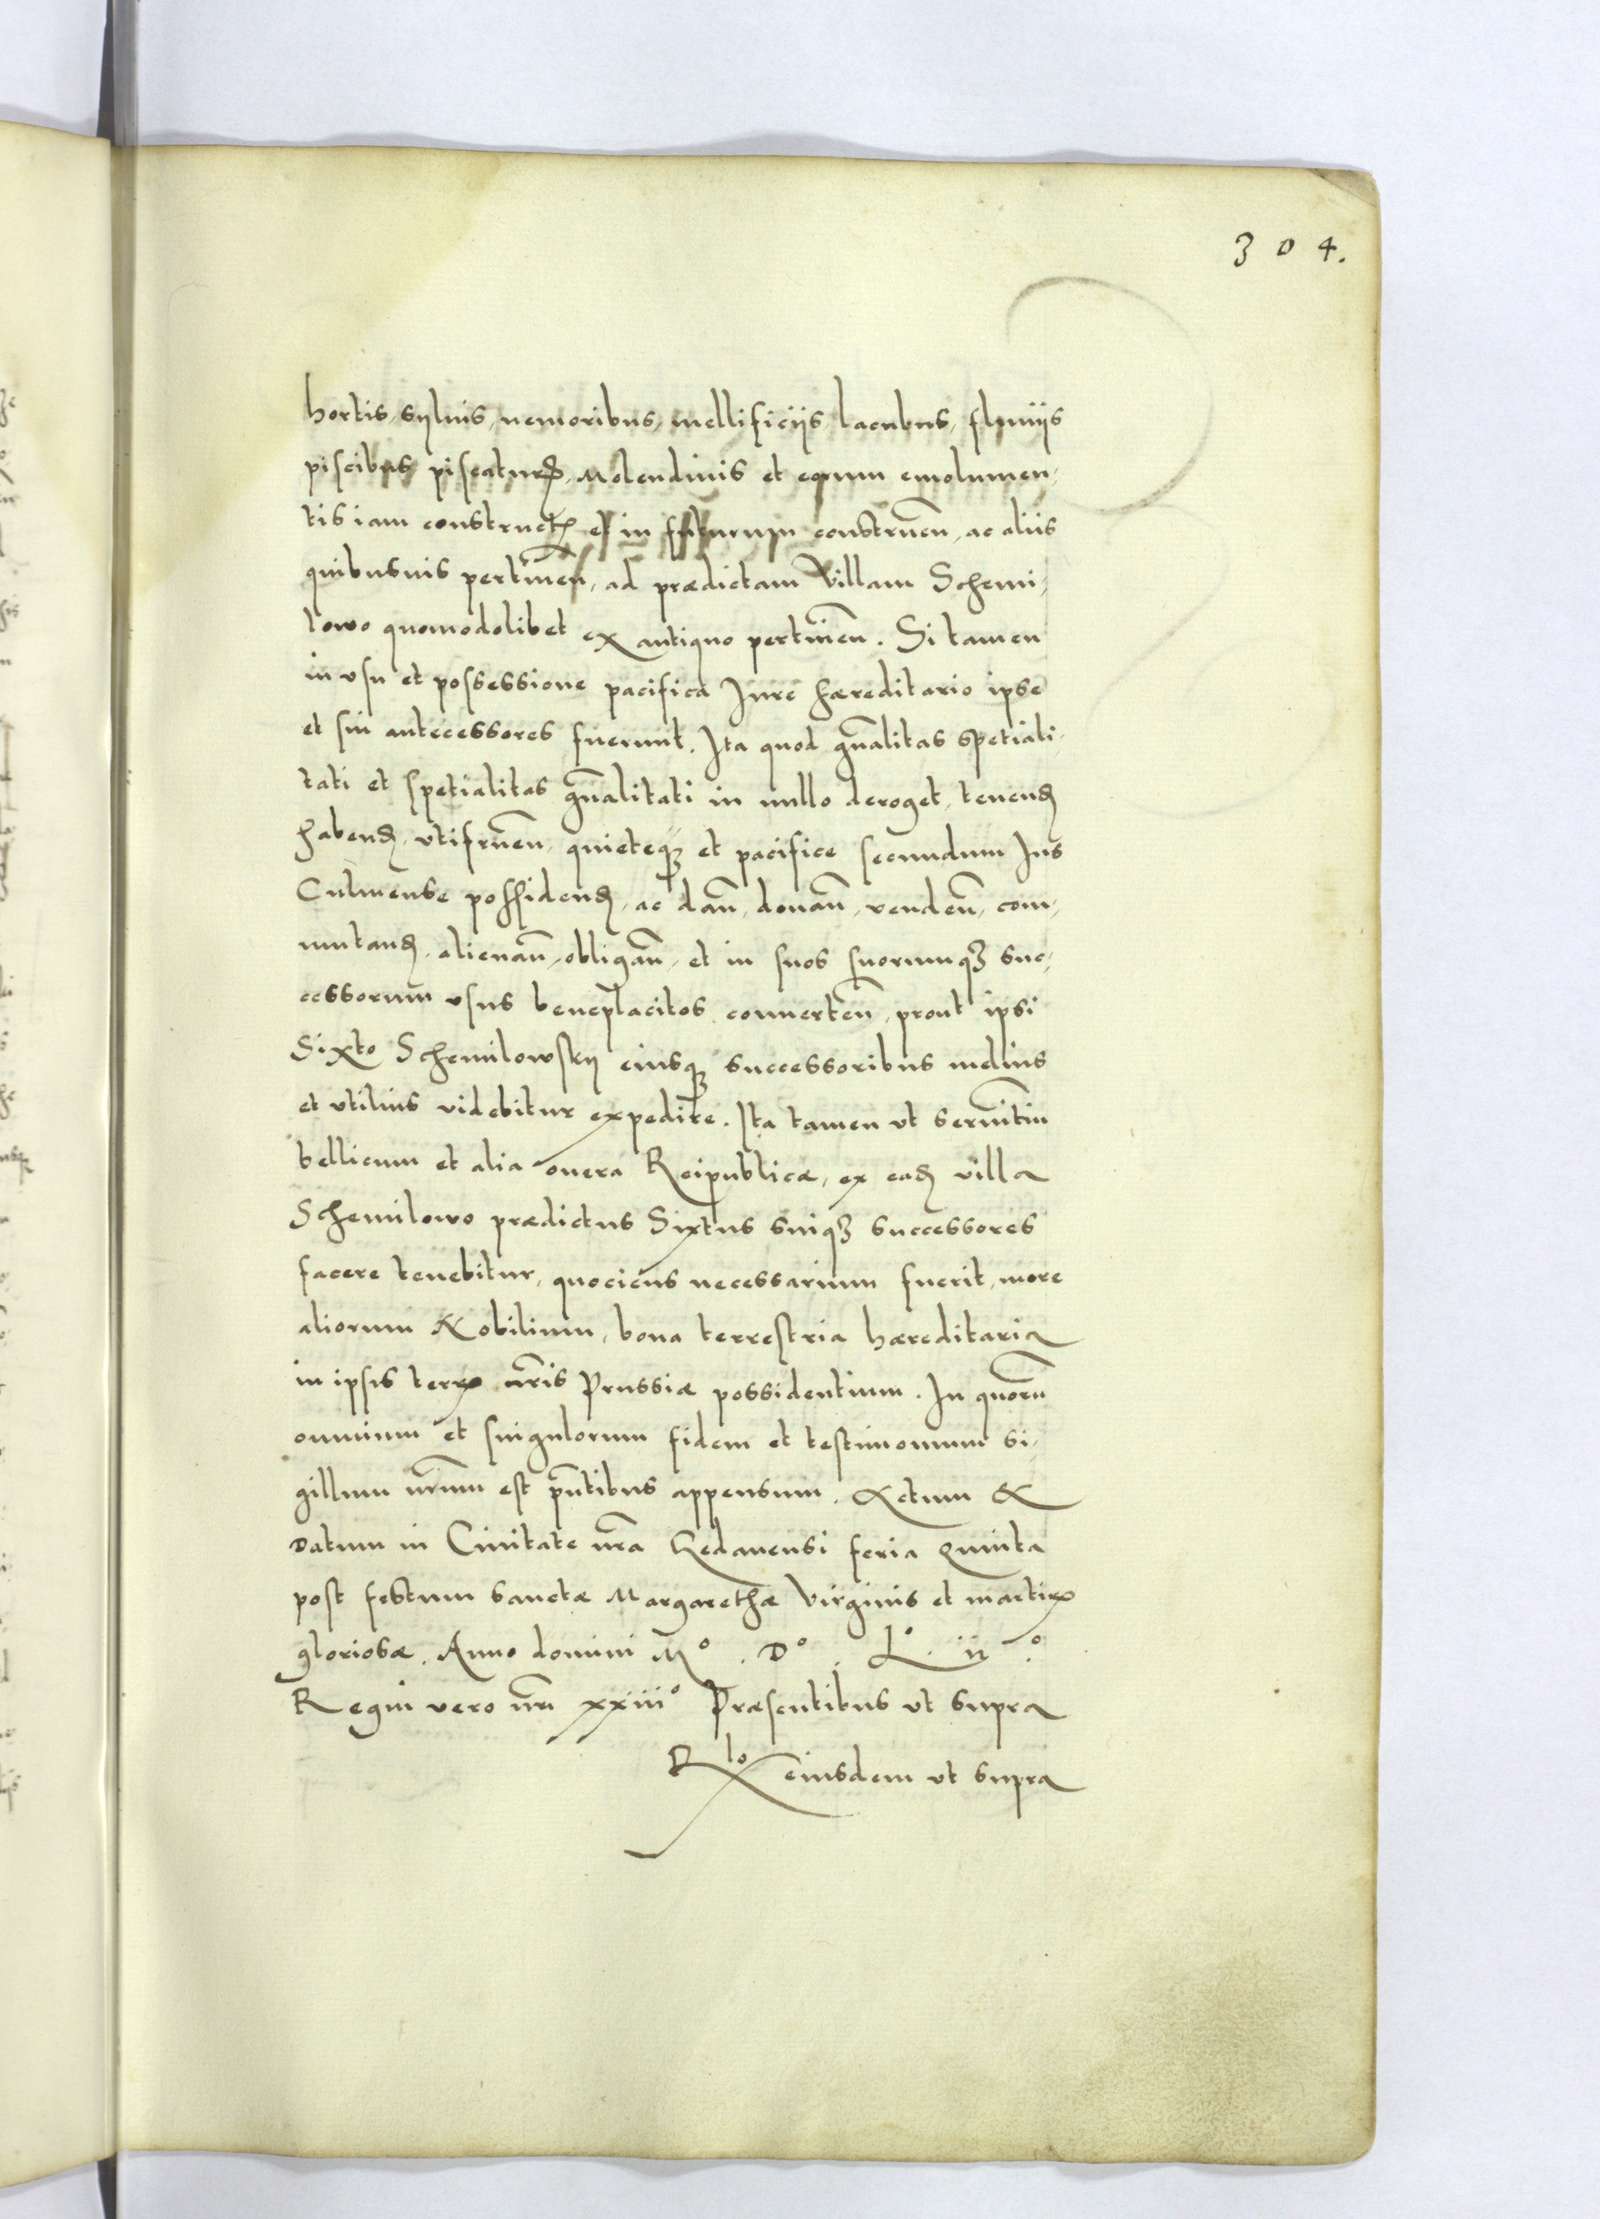 304.
hortis, sylvis, nemoribus, mellificiis, lacubus, fluviis
piscibus piscatur₎, Molendinis et eorum emolumen-
tis iam construct₎ et in futurum construen̄, ac aliis
quibusvis pertinen̄, ad prædictam Villam Schemi-
lowo quomodolibet ex antiquo pertinen̄. Si tamen
in usu et possessione pacifica Jure hæreditario ipse
et sui antecessores fuerunt. Ita quod gn̄alitas spetiali-
tati et spetialitas gn̄alitati in nullo deroget, tenend₎
habend₎, utifruen̄, quieteq₃ et pacifice secundum Jus
Culmense possidend₎, ac dan̄, donan̄, venden̄, com-
mutand₎, alienan̄, obligan̄, et in suos suorumq₃ suc-
cessorum usus beneplacitos converten̄, prout ipsi
Sixto Schemilowskij eiusq₃ successoribus melius
et utilius videbitur expedire. Ita tamen ut servitiū
bellicum et alia onera Reipublicæ, ex ead₎ villa
Schemilowo prædictus Sixtus suiq₃ successores
facere tenebitur, quociens necessarium fuerit, more
aliorum Nobilium, bona terrestria hæreditaria
in ipsis terr₎ nr̄is Prussiæ possidentium. In quorū
omnium et singulorum fidem et testimonium si-
gillum nr̄um est pn̄tibus appensum. Actum &
Datum in Civitate nr̄a Gedanensi feria Quinta
post festum sanctæ Margarethæ Virginis et martir₎
gloriosæ. Anno domini Mº. Dº. Lº. iiº.
Regni vero nr̄i xxiiiº Præsentibus ut supra
R^lo eiusdem ut supra